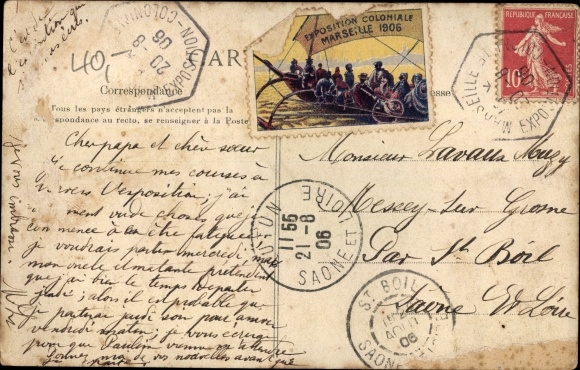 40,-
CAR
EXPOSITION COLONIALE
MARSEILLE 1906
RÉPUBLIQUE FRANÇAISE
10
MARSEILLE EXPO
EXPOSITION - COLONIA
20
8
06
Correspondance
esse
Tous les pays étrangers n'acceptent pas la
spondance au recto, se renseigner à la Poste
Cher papa et chère sœur
Je continue mes courses à
travers l'exposition; j'ai
vu de choses que j'
commence à en être fatiguée
je voudrais partir mercredi mais
mon oncle et ma tante prétendent
que j'ai bien le temps de rester
jeudi; alors il est probable que
je partirai
vendredi matin; je vous écrirai
pour que Paulin vienne m'attendre
donnez moi de vos nouvelles avant que
je parte
Je vous embrasse
Monsieur Lavaux
Messey-sur Grosne
Par St Boil
Saône Et Loire
11 55
21-8
06
SAONE ET LOIRE
ST BOIL
AOUT
06
SAONE ET LOIRE